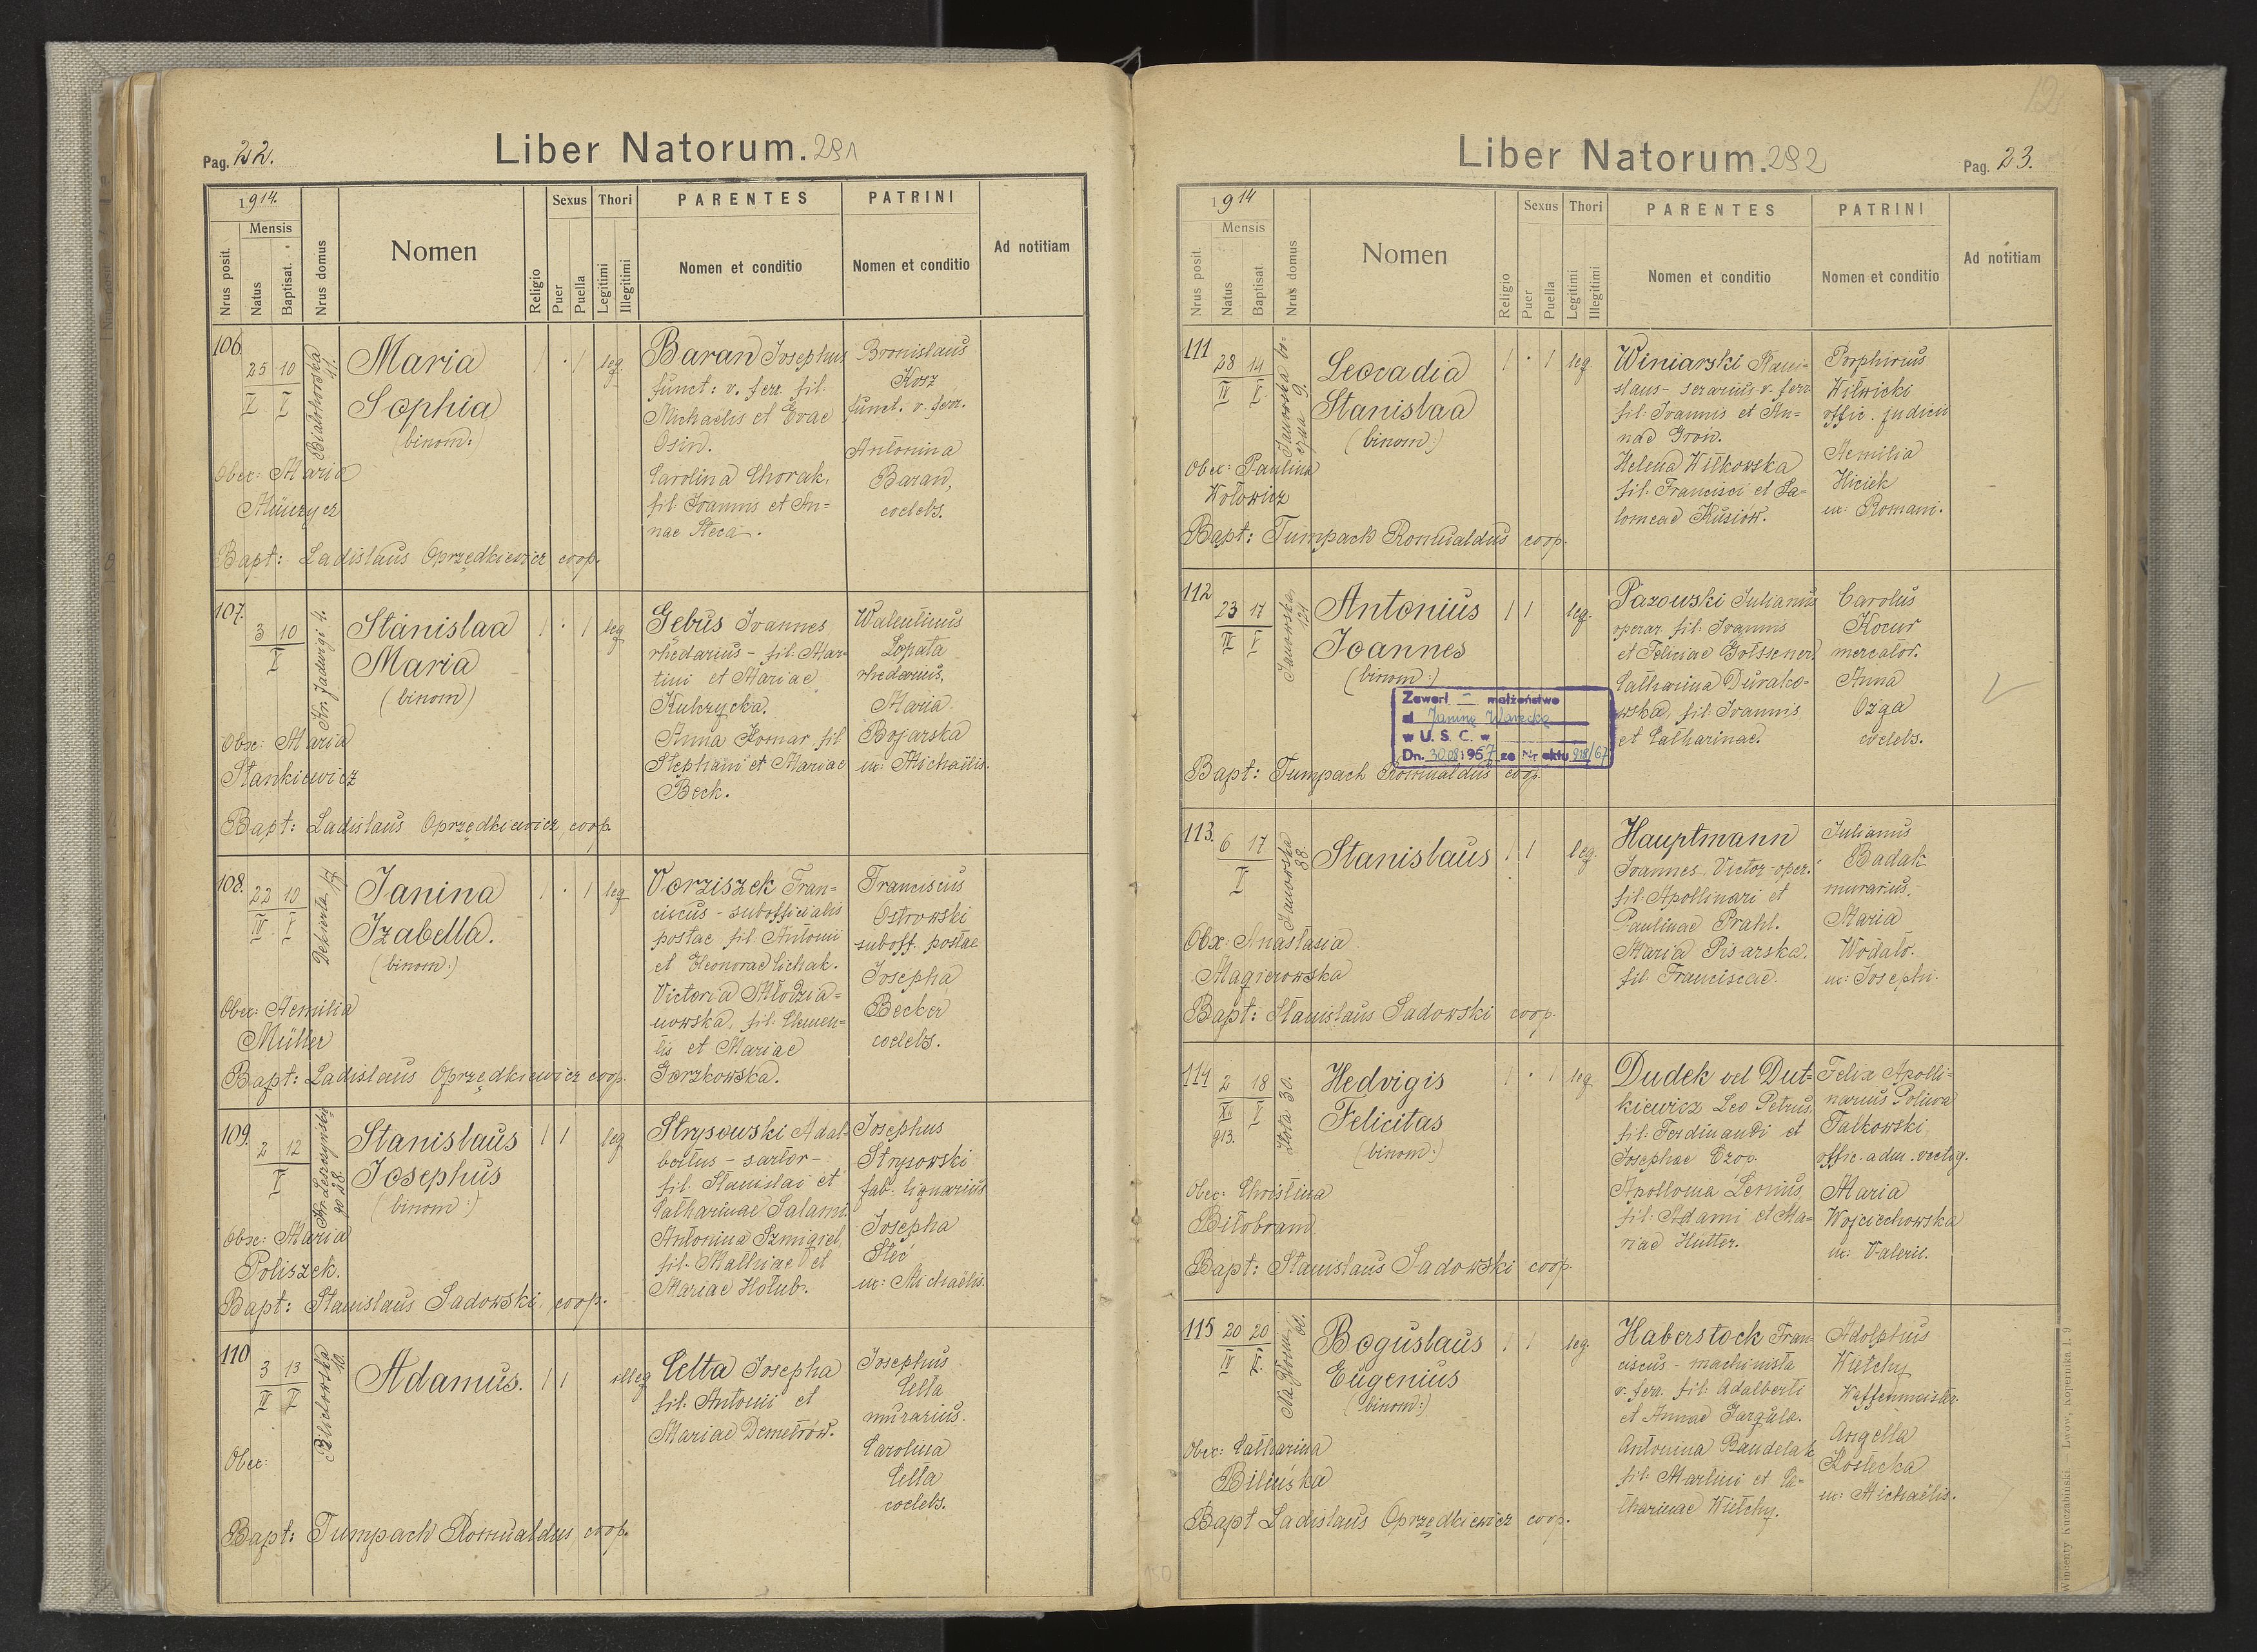 Pag. 22.
Liber Natorum. 291
1914.
Mensis
Nrus posit.
Natus
Baptisat.
Nrus domus
Nomen
Religio
Sexus
Puer
Puella
Thori
Legitimi
Illegitimi
PARENTES
Nomen et conditio
PATRINI
Nomen et conditio
Ad notitiam
106.
25 10
V V
Białohorska
41.
Maria
Sophia
(binom:)
Obex: Maria
Bapt: Ladislaus Oprzędkiewicz coop.
1 · 1 leg.
Baran Josephus
funct: v. ferr. fil.
Michaëlis et Evae
Osin.
Carolina Chorak,
fil. Joannis et An=
nae Steca.
Bronislaus
Kosz
funct. v. ferr.
Antonina
Baran,
coelebs.
107.
3 10
V
Kr. Jadwigi 4.
Stanislaa
Maria
(binom)
Obx: Maria
Stankiewicz
Bapt: Ladislaus Oprzędkiewicz, coop.
1 · 1 leg
Gebus Joannes
rhedarius - fil. Mar=
tini et Mariae
Kulczycka.
Anna Komar fil
Stephani et Mariae
Beck.
Walentinus
Łopata
rhedarius,
Maria
Bojarska
ux: Michaëlis.
108.
22 10
IV V
Dekierta 17
Janina
Izabella.
(binom:)
Obex: Aemilia
Müller
Bapt: Ladislaus Oprzędkiewicz coop.
1 · 1 leg
Vorziszek Fran=
ciscus - subofficialis
postae fil. Antonii
et Eleonorae Cichak.
Victoria Młodzia=
nowska, fil. Clemen=
tis et Mariae
Gorzkowska.
Franciscus
Ostrowski
suboff. postae
Josepha
Becker
coelebs.
109.
2 12
V
28.
Stanislaus
Josephus
(binom:)
Obx: Maria
Poliszek.
Bapt: Stanislaus Sadowski, coop.
1 1 leg
Strysowski Adal=
bertus - sartor -
fil. Stanislai et
Catharinae Salami.
Antonina Szmigiel,
fil. Mathiae et
Mariae Hołub.
Josephus
Strysowski
fab. lignarius
Josepha
Steć
ux: Michaëlis.
110
3 13
IV V
10.
Adamus.
Obex:
Bapt: Tumpach Romualdus, coop.
1 1 illeg
Celta Josepha
fil. Antonii et
Mariae Demetrów.
Josephus
Celta
murarius.
Carolina
Celta
coelebs.
12
Liber Natorum. 292
Pag. 23.
1914
Mensis
Nrus posit.
Natus
Baptisat.
Nrus domus
Nomen
Religio
Sexus
Puer
Puella
Thori
Legitimi
Illegitimi
PARENTES
Nomen et conditio
PATRINI
Nomen et conditio
Ad notitiam
111
28 14
IV V
Janowska bo=
czna 9.
Leocadia
Stanislaa
(binom:)
Obex: Paulina
Wołowicz
Bapt: Tumpach Romualdus coop.
1 · 1 leg
Winiarski Stani=
slaus - serarius v. ferr
fil. Joannis et An=
nae Groń.
Helena Witkowska
fil. Francisci et Sa=
lomeae Kusiów.
Porphirius
Wilwicki
offic. judicii
Aemilia
Hiciek
ux: Romani.
112
23 17
IV V
Janowska
121
Antonius
Joannes
(binom:)
Bapt: Tumpach Romualdus coop.
1 1 leg.
Pazowski Julianus
operar. fil. Joannis
et Feliciae Gołssener.
Catharina Durako=
wska, fil. Joannis
et Catharinae.
Carolus
Kocur
mercator.
Anna
Ozga
coelebs.
Zawarł — małżeństwo
z Janiną Warecką
w U. S. C. w
Dn. 30.08 1957 za Nr aktu 918/67
113.
6 17
V
Janowska
88.
Stanislaus
Obx: Anastasia
Magierowska
Bapt: Stanislaus Sadowski coop.
1 1 leg.
Hauptmann
Joannes Victor - oper.
fil. Apollinari et
Paulinae Prahl.
Maria Pisarska,
fil. Franciscae.
Julianus
Badak
murarius,
Maria
Wodało.
ux: Josephi.
114
2 18
XII V
913.
Złota 30.
Hedvigis
Felicitas
(binom:)
Obex: Christina
Bitobram
Bapt: Stanislaus Sadowski coop.
1 · 1 leg
Dudek vel Dut=
kiewicz Leo Petrus,
fil. Ferdinandi et
Josephae Czop.
Apollonia Lernius,
fil. Adami et Ma=
riae Hütter.
Felix Apolli=
narius Poliwa
Falkowski
offic. adm. vectig.
Maria
Wojciechowska
ux: Valerii.
115
20 20
IV V.
Na Błonie
Boguslaus
Eugenius
(binom:)
Obex: Catharina
Bilińska
Bapt Ladislaus Oprzędkiewicz coop.
1 1 leg.
Haberstock Fran=
ciscus - machinista
v. ferr. fil. Adalberti
et Annae Gargula.
Antonina Bandelak
fil. Martini et Ca=
tharinae Wietchy.
Adolphus
Wietchy
Waffenmeister.
Angella
Kostecka
ux: Michaëlis.
Wincenty Kuczabiński — Lwów, Kopernika l. 9